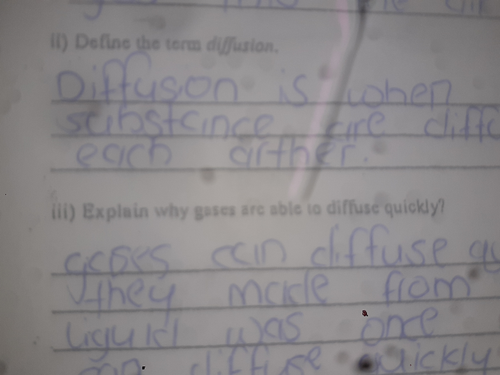 ii) Define the term diffusion.
Diffuson is when
substance are diffe
each arther.
iii) Explain why gases are able to diffuse quickly?
gases can diffuse qu
they made from
liguid was once
diffuse quickly